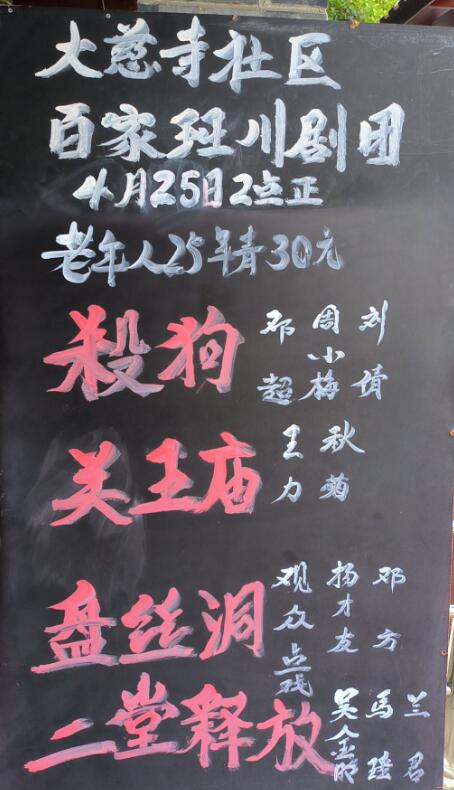 大慈寺社区
百家班川剧团
4月25日2点正
老年人25年青30元
殺狗 邓超 周小梅 刘婧
关王庙 王力 秋菊
盘丝洞 观众点戏 杨才友 邓方
二堂释放 吴 马 兰君